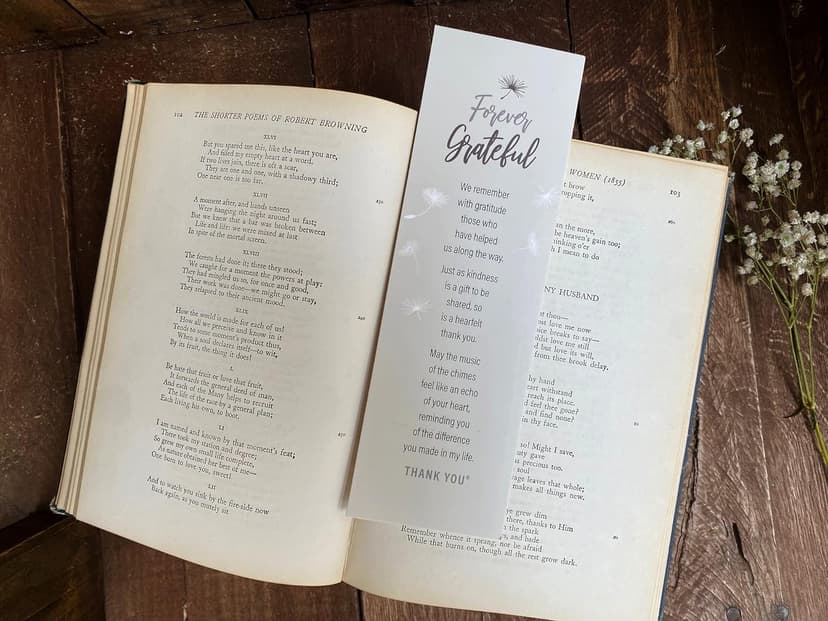 112 THE SHORTER POEMS OF ROBERT BROWNING
XLVI
But you spared me this, like the heart you are,
And filled my empty heart at a word.
If two lives join, there is oft a scar,
They are one and one, with a shadowy third;
One near one is too far.
230
XLVII
A moment after, and hands unseen
Were hanging the night around us fast;
But we knew that a bar was broken between
Life and life: we were mixed at last
In spite of the mortal screen.
XLVIII
The forests had done it; there they stood;
We caught for a moment the powers at play:
They had mingled us so, for once and good,
Their work was done—we might go or stay,
They relapsed to their ancient mood.
240
XLIX
How the world is made for each of us!
How all we perceive and know in it
Tends to some moment's product thus,
When a soul declares itself—to wit,
By its fruit, the thing it does!
L
Be hate that fruit or love that fruit,
It forwards the general deed of man,
And each of the Many helps to recruit
The life of the race by a general plan;
Each living his own, to boot.
250
LI
I am named and known by that moment's feat;
There took my station and degree;
So grew my own small life complete,
As nature obtained her best of me—
One born to love you, sweet!
LII
And to watch you sink by the fire-side now
Back again, as you mutely sit
Forever
Grateful
We remember
with gratitude
those who
have helped
us along the way.
Just as kindness
is a gift to be
shared, so
is a hearfelt
thank you.
May the music
of the chimes
feel like an echo
of your heart,
reminding you
of the difference
you made in my life.
THANK YOU®
WOMEN (1855) 103
brow
ropping it,
260
an the more,
be heaven's gain too;
hinking o'er
h I mean to do
NY HUSBAND
thou—
st love me now
oice breaks to say—
ouldst love me still
nd but love its will,
from thee brook delay.
hy hand
eart withstand
reach its place.
d feel thee gone?
and find none?
in thy face.
so! Might I save,
uty gave
precious too.
soul
age leaves that whole;
makes all things new.
ye grew dim
there, thanks to Him
the spark
s, and bade
Remember whence it sprang, nor be afraid
While that burns on, though all the rest grow dark.